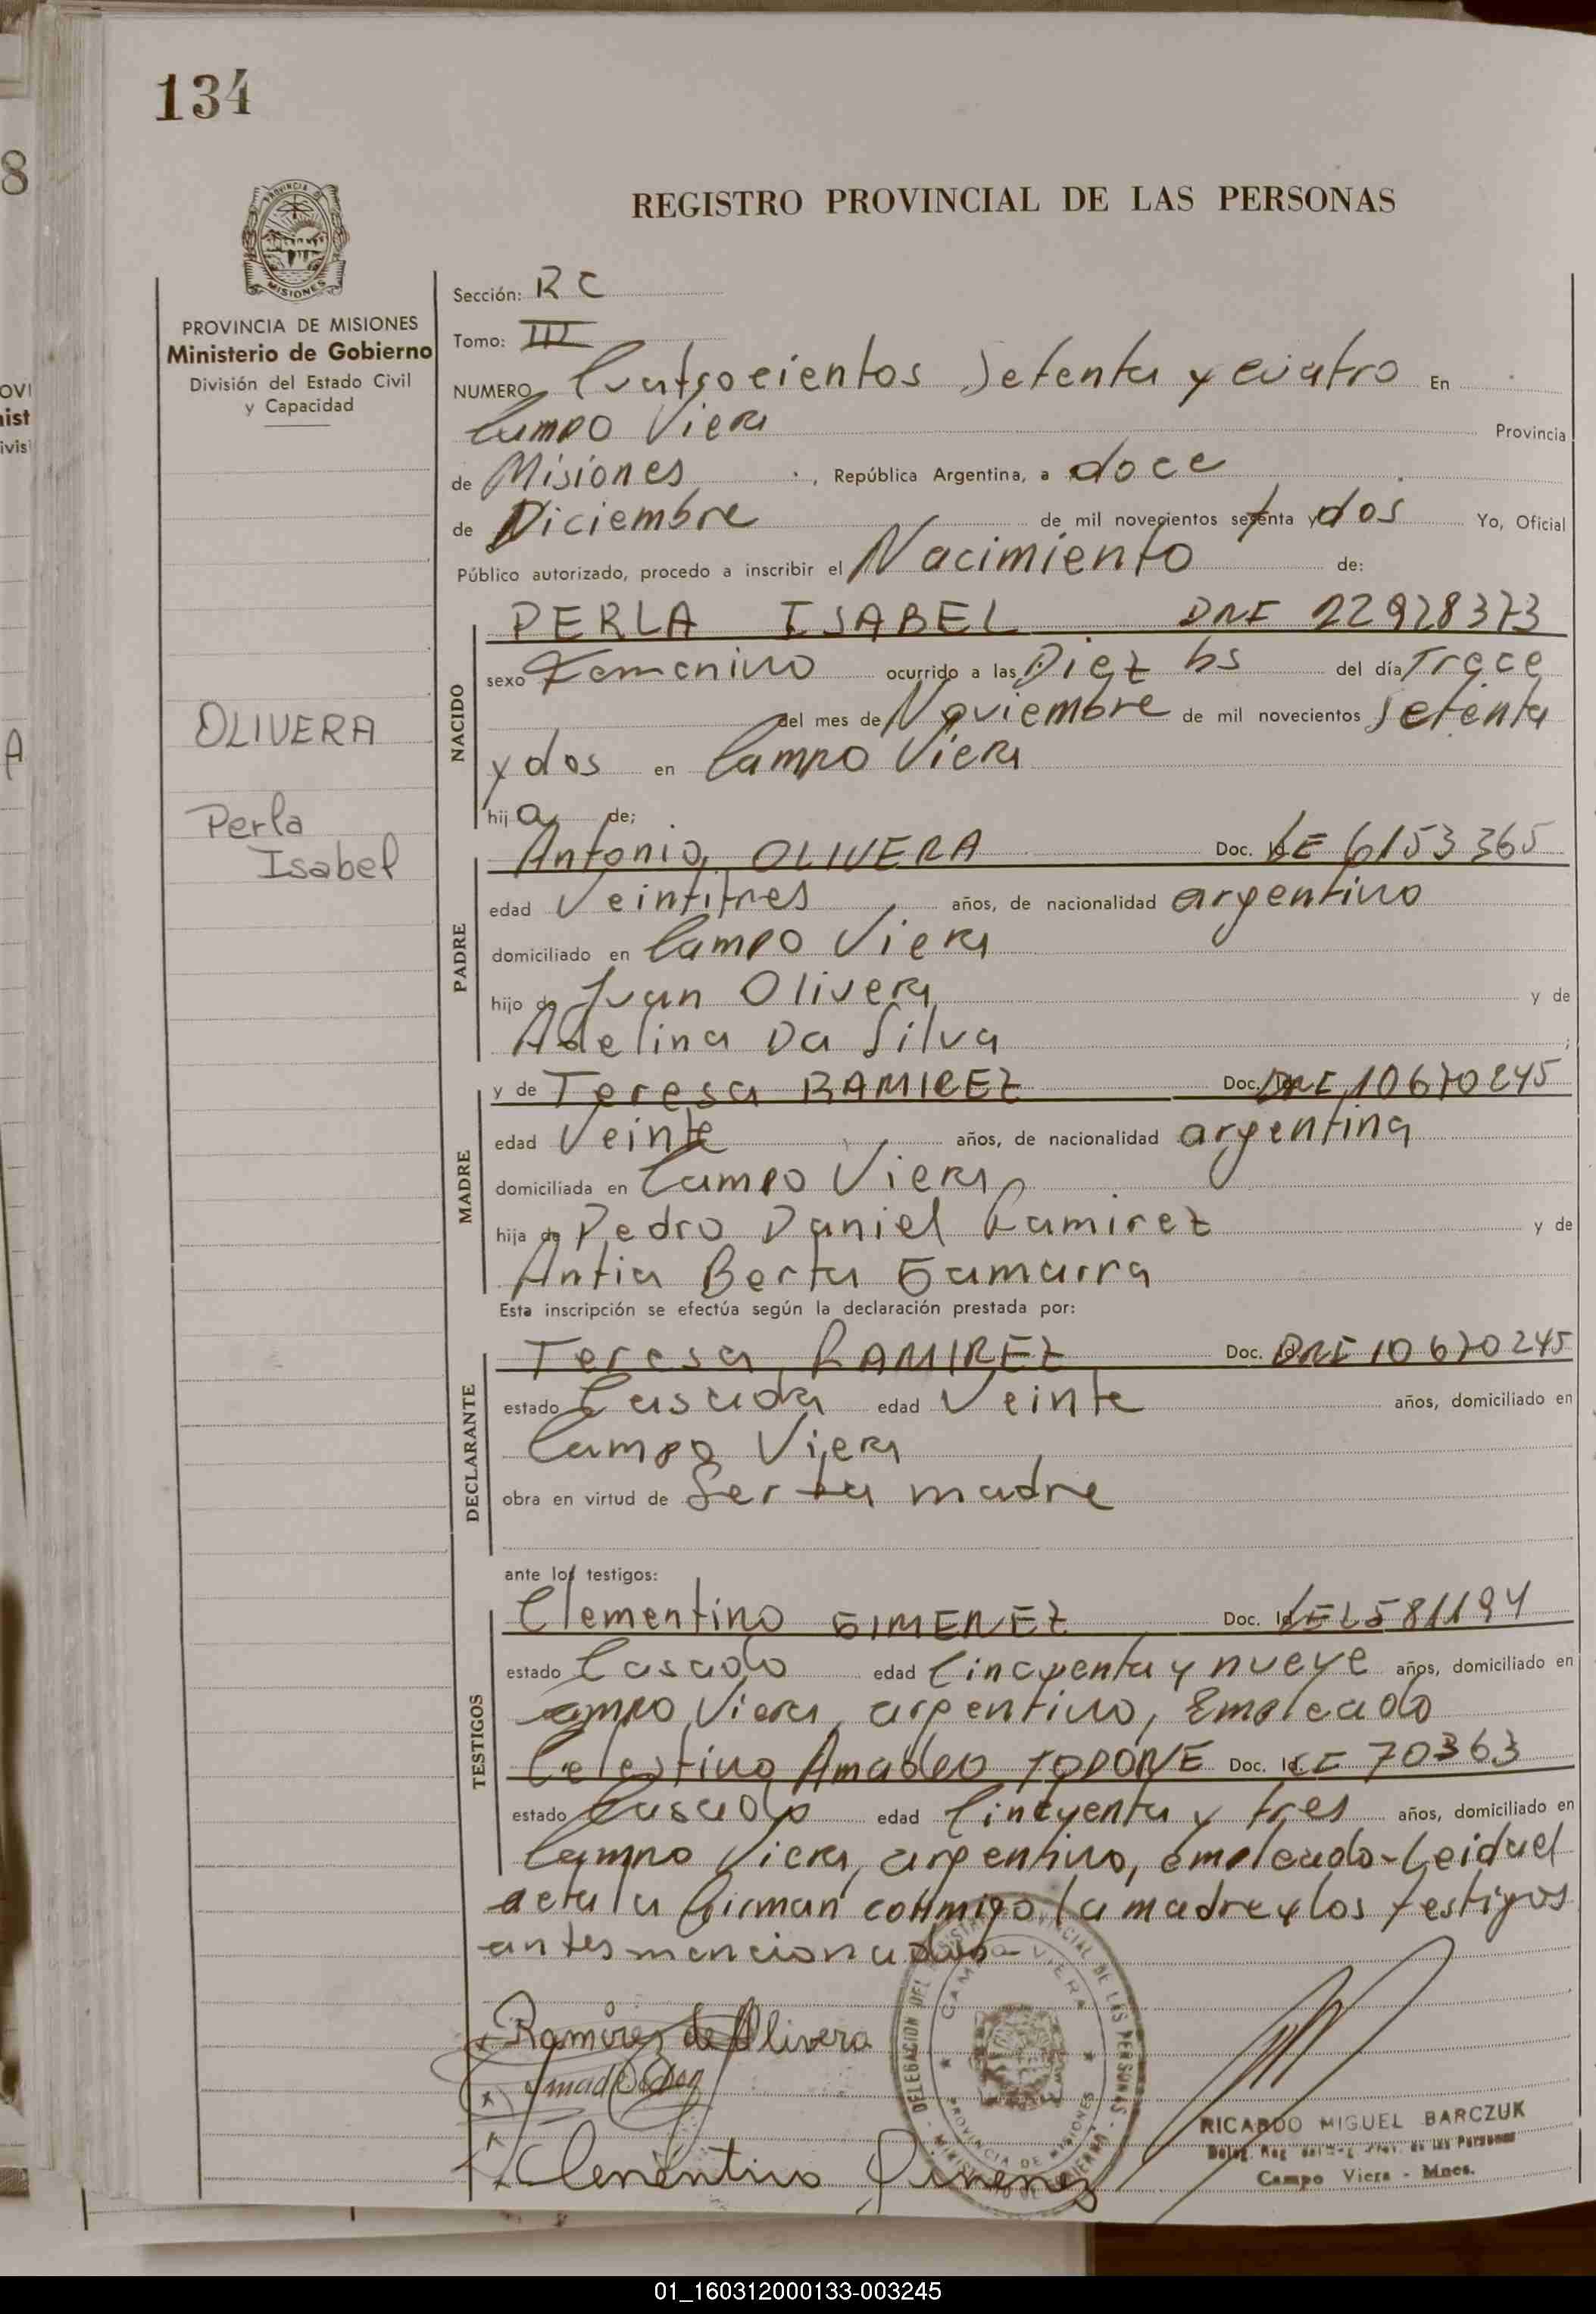 134
8
REGISTRO PROVINCIAL DE LAS PERSONAS
PROVINCIA DE MISIONES
Ministerio de Gobierno
División del Estado Civil
y Capacidad
OLIVERA
Perla
Isabel
Sección: R C
Tomo: III
NUMERO Cuatrocientos Setenta y cuatro En
Campo Viera Provincia
de Misiones, República Argentina, a doce
de Diciembre de mil novecientos setenta y dos Yo, Oficial
Público autorizado, procedo a inscribir el Nacimiento de:
NACIDO
PERLA ISABEL DNI 22928373
sexo Femenino ocurrido a las Diez hs del día Trece
del mes de Noviembre de mil novecientos setenta
y dos en Campo Viera
hija de;
PADRE
Antonio OLIVERA Doc. Id. LE 6153365
edad Veintitres años, de nacionalidad argentino
domiciliado en Campo Viera
hijo de Juan Olivera y de
Adelina Da Silva ;
MADRE
y de Teresa RAMIREZ Doc. Id. DNI 10670245
edad Veinte años, de nacionalidad argentina
domiciliada en Campo Viera
hija de Pedro Daniel Ramirez y de
Antia Berta Gamarra
Esta inscripción se efectúa según la declaración prestada por:
DECLARANTE
Teresa RAMIREZ Doc. Id. DNI 10670245
estado Casada edad Veinte años, domiciliado en
Campo Viera
obra en virtud de Ser la madre
ante los testigos:
TESTIGOS
Clementino GIMENEZ Doc. Id. LE 2581194
estado Casado edad Cincuenta y nueve años, domiciliado en
ampo Viera, argentino, Empleado
Celestino Amadeo TODONE Doc. Id. LE 70363
estado Casado edad Cincuenta y tres años, domiciliado en
Campo Viera, argentino, empleado-Leidael
acta la firman conmigo la madre y los testigos
antes mencionados-
Ramírez de Olivera
Clementino Jimenez
DELEGACION DEL REGISTRO PROVINCIAL DE LAS PERSONAS
CAMPO VIERA
PROVINCIA DE MISIONES
MINISTERIO DE GOBIERNO
RICARDO MIGUEL BARCZUK
Campo Viera - Mnes.
01_160312000133-003245